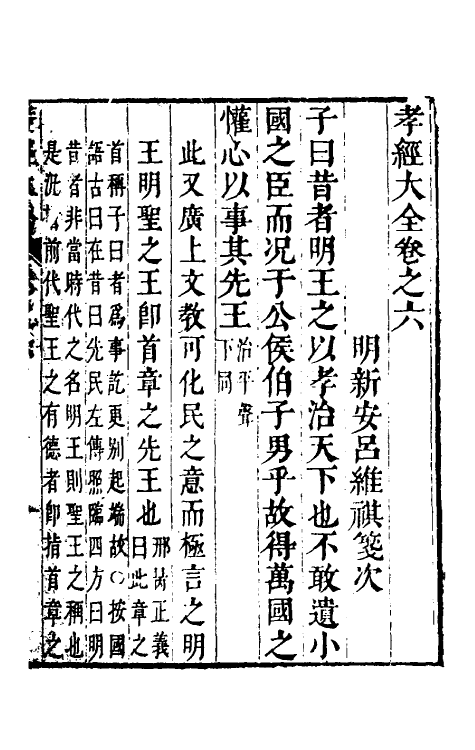 孝經大全卷之六
明新安呂維祺箋次
子曰昔者明王之以孝治天下也不敢遺小
國之臣而况于公侯伯子男乎故得萬國之
懽心以事其先王治平聲
下同
此又廣上文教可化民之意而極言之明
王明聖之王卽首章之先王也邢昺正義
曰此章之
首稱子曰者爲事訖更别起端故○按國
語古曰在昔曰先民左傳照臨四方曰明
昔者非當時代之名明王則聖王之稱也
是況前代聖王之有德者卽指首章之